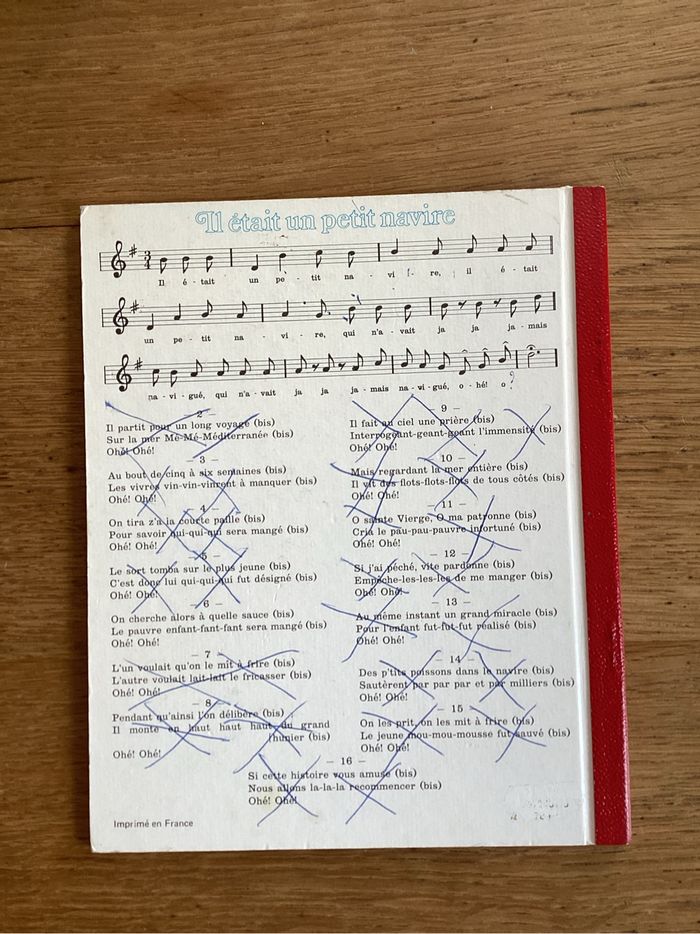 Il était un petit navire
Il é - tait un pe - tit na - vi - re, il é - tait
un pe - tit na - vi - re, qui n'a - vait ja ja ja - mais
na - vi - gué, qui n'a - vait ja ja ja - mais na - vi - gué, o - hé! o
- 2 -
Il partit pour un long voyage (bis)
Sur la mer Mé-Mé-Méditerranée (bis)
Ohé! Ohé!
- 3 -
Au bout de cinq à six semaines (bis)
Les vivres vin-vin-vinrent à manquer (bis)
Ohé! Ohé!
- 4 -
On tira z'à la courte paille (bis)
Pour savoir qui-qui-qui sera mangé (bis)
Ohé! Ohé!
- 5 -
Le sort tomba sur le plus jeune (bis)
C'est donc lui qui-qui-qui fut désigné (bis)
Ohé! Ohé!
- 6 -
On cherche alors à quelle sauce (bis)
Le pauvre enfant-fant-fant sera mangé (bis)
Ohé! Ohé!
- 7 -
L'un voulait qu'on le mit à frire (bis)
L'autre voulait lait-lait le fricasser (bis)
Ohé! Ohé!
- 8 -
Pendant qu'ainsi l'on délibère (bis)
Il monte en haut haut haut du grand
thunier (bis)
Ohé! Ohé!
- 9 -
Il fait au ciel une prière (bis)
Interrogeant-geant-geant l'immensité (bis)
Ohé! Ohé!
- 10 -
Mais regardant la mer entière (bis)
Il vit des flots-flots-flots de tous côtés (bis)
Ohé! Ohé!
- 11 -
O sainte Vierge, O ma patronne (bis)
Cria le pau-pau-pauvre infortuné (bis)
Ohé! Ohé!
- 12 -
Si j'ai péché, vite pardonne (bis)
Empêche-les-les-les de me manger (bis)
Ohé! Ohé!
- 13 -
Au même instant un grand miracle (bis)
Pour l'enfant fut-fut-fut réalisé (bis)
Ohé! Ohé!
- 14 -
Des p'tits poissons dans le navire (bis)
Sautèrent par par par et par milliers (bis)
Ohé! Ohé!
- 15 -
On les prit, on les mit à frire (bis)
Le jeune mou-mou-mousse fut sauvé (bis)
Ohé! Ohé!
- 16 -
Si cette histoire vous amuse (bis)
Nous allons la-la-la recommencer (bis)
Ohé! Ohé!
Imprimé en France